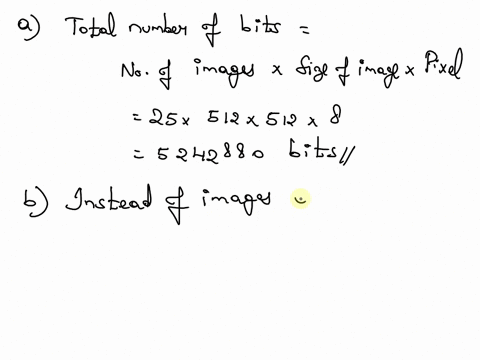 a) Total number of bits =
No. of images x Size of image x Pixel
= 25 x 512 x 512 x 8
= 5242880 bits //
b) Instead of images